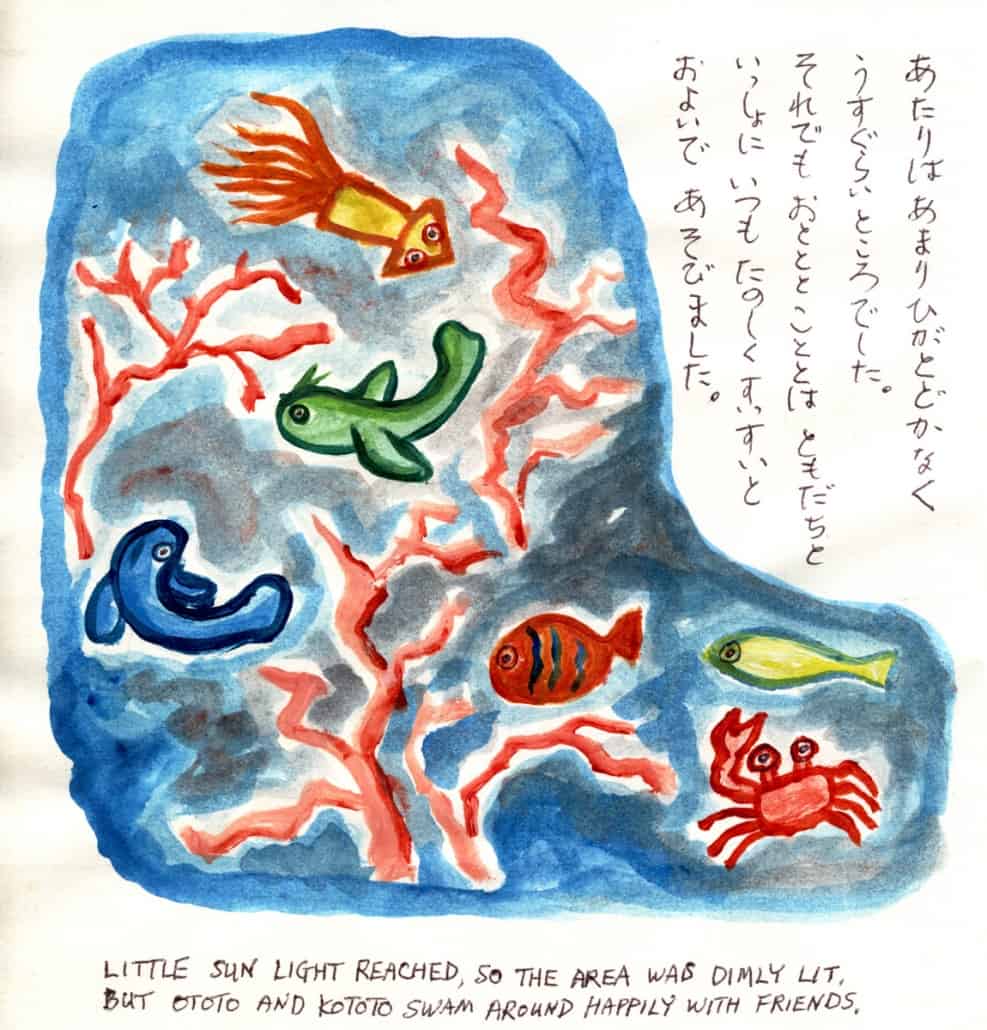 あたりは あまり ひがとどかなく
うすぐらい ところでした。
それでも おととと こととは ともだちと
いっしょに いつも たのしく すいすいと
およいで あそびました。
LITTLE SUN LIGHT REACHED, SO THE AREA WAS DIMLY LIT.
BUT OTOTO AND KOTOTO SWAM AROUND HAPPILY WITH FRIENDS.